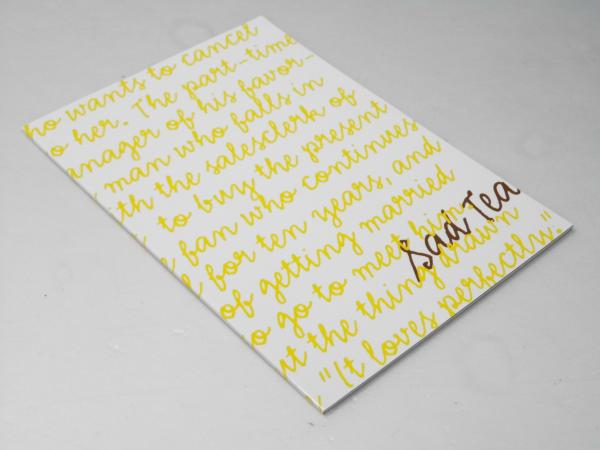 ho wants to cancel
o her. The part-time
anager of his favor-
man who falls in
th the salesclerk of
to buy the present
fan who continues
for ten years, and
of getting married
o go to meet him
ut the thing drawn
"It loves perfectly."
Sad Tea